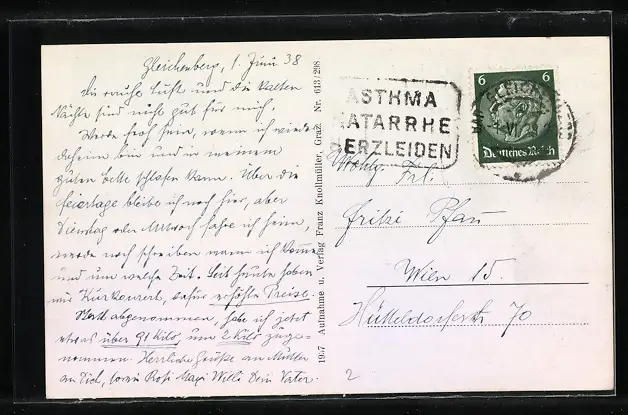 Gleichenberg, 1. Juni 38
die rauhe Luft und die kalten
Nächte sind nicht gut für mich.
Werde froh sein, wenn ich wieder
daheim bin und in meinem
guten Bette schlafen kann. Über die
feiertage bleibe ich noch hier, aber
Dienstag oder Mittwoch fahre ich heim,
werde noch schreiben wann ich komme
und um welche Zeit. Seit heute haben
wir Kurkonzert, dafür erhöhte Preise.
Statt abgenommen, habe ich jetzt
etwas über 91 Kilo, um 2 Kilo zuge-
nommen. Herzliche Grüße an Mutter
an Dich, sowie Rosi Magi Willi Dein Vater.
19:7 Aufnahme u. Verlag Franz Knollmüller, Graz. Nr. 613/298
ASTHMA
KATARRHE
HERZLEIDEN
6 6
Deutsches Reich
Wohlg. Frl.
Fritzi Pfau
Wien 15.
Hütteldorferstr 70
2